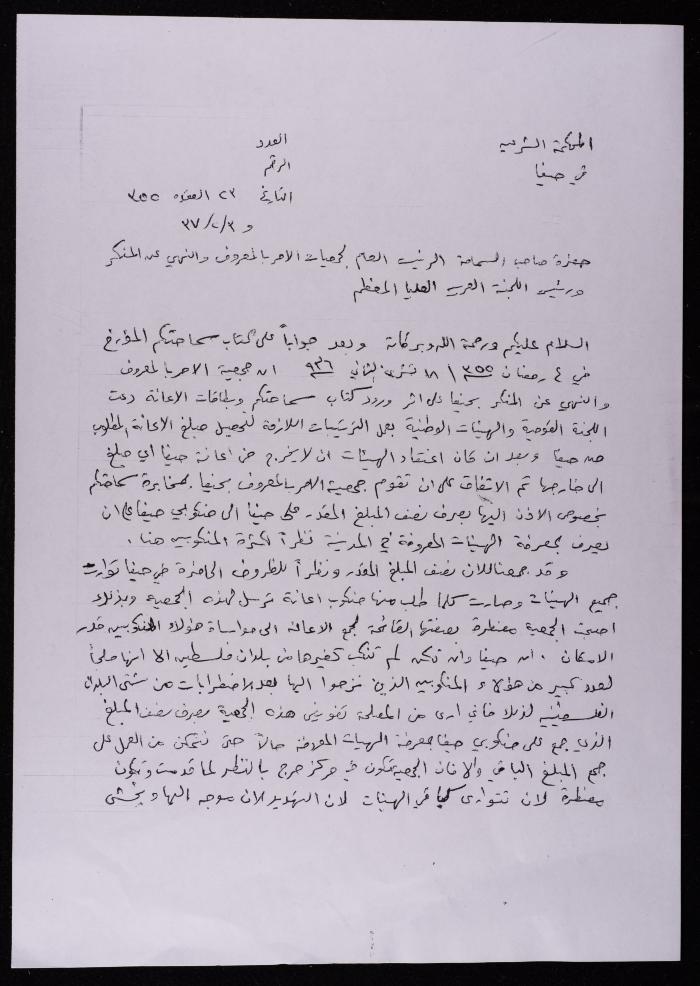 المحكمة الشرعية
في حيفا
العدد
الرقم
التاريخ ٢٣ القعدة ٣٥٥
و ٣٧/٢/٣
حضرة صاحب السماحة الرئيس العام لجمعيات الامر بالمعروف والنهي عن المنكر
ورئيس اللجنة العربية العليا المعظم
السلام عليكم ورحمة الله وبركاته وبعد جواباً على كتاب سماحتكم المؤرخ
في ٤ رمضان ٣٥٥ / ١٨ تشرين الثاني ٩٣٦ ان جمعية الامر بالمعروف
والنهي عن المنكر بحيفا على اثر ورود كتاب سماحتكم وبطاقات الاعانة دعت
اللجنة القومية والهيئات الوطنية بعمل الترتيبات اللازمة لتحصيل مبلغ الاعانة المطلوب
من حيفا وبعد ان كان اعتقاد الهيئات ان لا يخرج من اعانة حيفا اي مبلغ
الى خارجها تم الاتفاق على ان تقوم جمعية الامر بالمعروف بحيفا بمخابرة سماحتكم
بخصوص الاذن اليها بصرف نصف المبلغ المقدر على حيفا الى منكوبي حيفا على ان
يصرف بمعرفة الهيئات المعروفة في المدينة نظراً لكثرة المنكوبين هنا .
وقد جمعنا للان نصف المبلغ المقدر ونظراً للظروف الحاضرة في حيفا توارت
جميع الهيئات وصارت كلما طلب منها منكوب اعانة ترسل لهذه الجمعية وبذلك
اصبحت الجمعية مضطرة بصفتها القائمة بجمع الاعانة الى مواساة هؤلاء المنكوبين قدر
الامكان . ان حيفا وان تكن لم تنكب كغيرها من بلدان فلسطين الا انها ملجأ
لعدد كبير من هؤلاء المنكوبين الذين نزحوا اليها بعد الاضطرابات من شتى البلدان
الفلسطينية لذلك فاني ارى من المصلحة تفويض هذه الجمعية بصرف نصف المبلغ
الذي جمع على منكوبي حيفا بمعرفة الهيئات المعروفة حالاً حتى نتمكن من العمل على
جمع المبلغ الباقي والا فان الجمعية تكون في مركز حرج بالنظر لما قدمت وتكون
مضطرة لان تتوارى كباقي الهيئات لان التهديد الان موجه اليها ويخشى